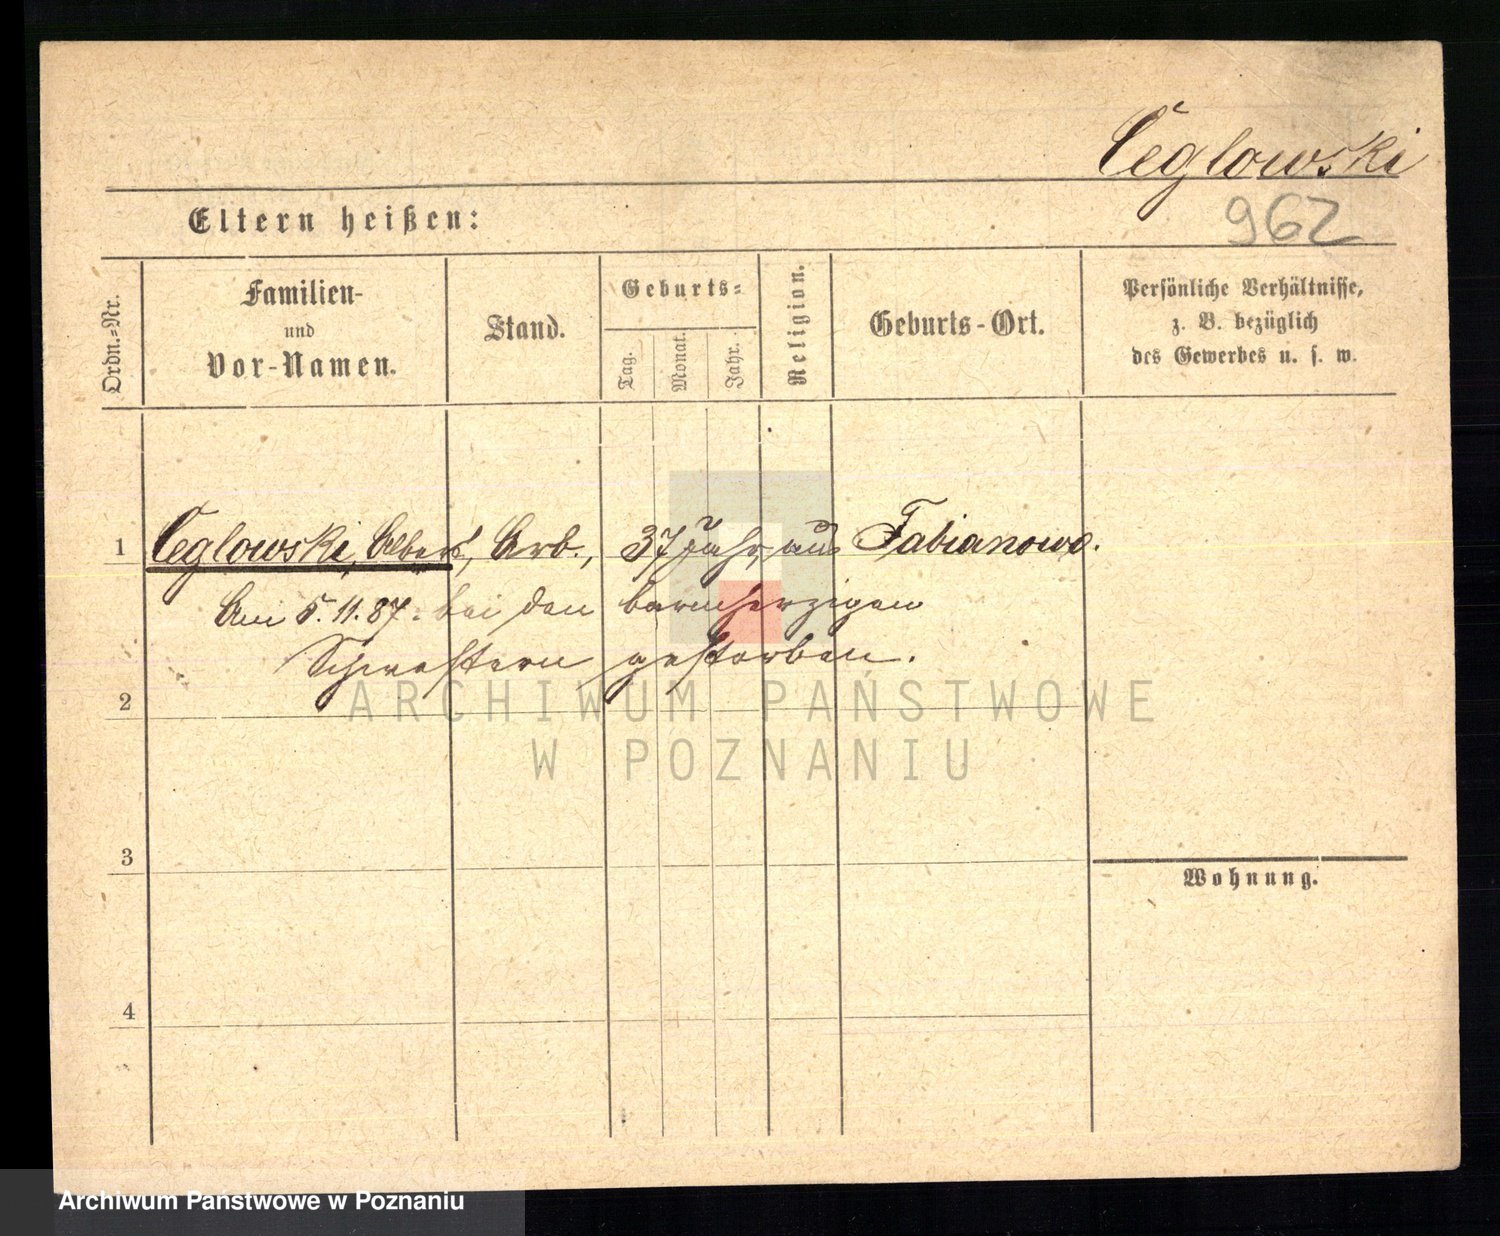 Ceglowski
962
Eltern heißen:
Ordn.-Nr.
Familien-
und
Vor-Namen.
Stand.
Geburts-
Tag.
Monat.
Jahr.
Religion.
Geburts-Ort.
Persönliche Verhältnisse,
z. B. bezüglich
des Gewerbes u. s. w.
1 Ceglowski, Albert, Arb., 37 Jahr, aus Fabianowo.
Am 5.11.87. bei den barmherzigen
Schwestern gestorben.
2
ARCHIWUM PAŃSTWOWE
W POZNANIU
3
Wohnung.
4
Archiwum Państwowe w Poznaniu